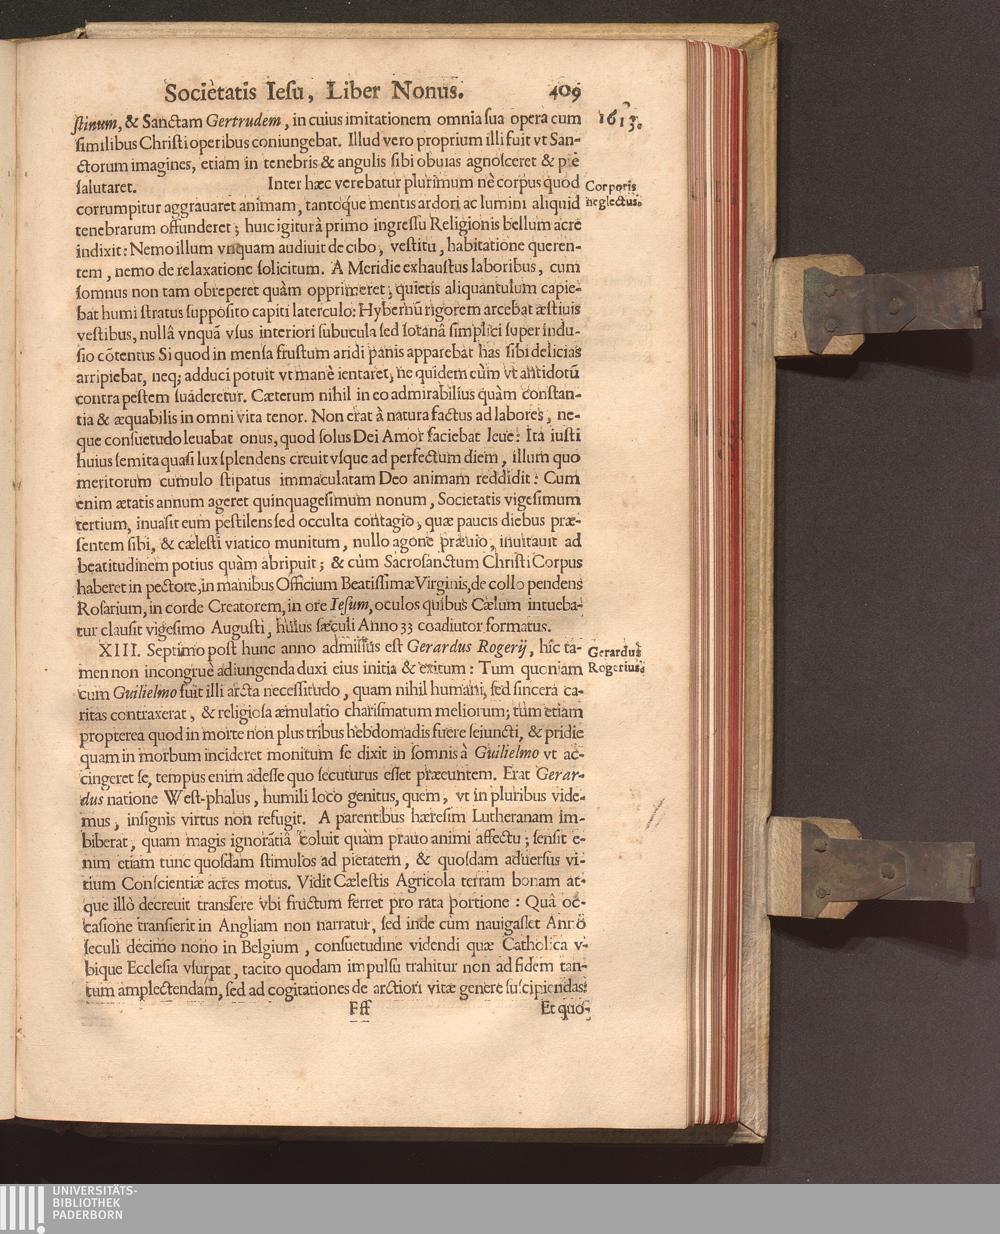 Societatis Iesu, Liber Nonus. 409
1613.
stinum, & Sanctam Gertrudem, in cuius imitationem omnia sua opera cum
similibus Christi operibus coniungebat. Illud vero proprium illi fuit vt San-
ctorum imagines, etiam in tenebris & angulis sibi obuias agnosceret & piè
salutaret. Inter hæc verebatur plurimum nè corpus quod
Corporis
neglectus.
corrumpitur aggrauaret animam, tantoque mentis ardori ac lumini aliquid
tenebrarum offunderet; huic igitur à primo ingressu Religionis bellum acre
indixit: Nemo illum vnquam audiuit de cibo, vestitu, habitatione queren-
tem, nemo de relaxatione solicitum. A Meridie exhaustus laboribus, cum
somnus non tam obreperet quàm opprimeret, quietis aliquantulum capie-
bat humi stratus supposito capiti laterculo: Hybernũ rigorem arcebat æstiuis
vestibus, nullâ vnquã vsus interiori subucula sed sotanâ simplici super indu-
sio cõtentus Si quod in mensa frustum aridi panis apparebat has sibi delicias
arripiebat, neq; adduci potuit vt manè ientaret, ne quidem cùm vt antidotũ
contra pestem suaderetur. Cæterum nihil in eo admirabilius quàm constan-
tia & æquabilis in omni vita tenor. Non erat à natura factus ad labores, ne-
que consuetudo leuabat onus, quod solus Dei Amor faciebat leue: Ita iusti
huius semita quasi lux splendens creuit vsque ad perfectum diem, illum quo
meritorum cumulo stipatus immaculatam Deo animam reddidit: Cum
enim ætatis annum ageret quinquagesimum nonum, Societatis vigesimum
tertium, inuasit eum pestilens sed occulta contagio, quæ paucis diebus præ-
sentem sibi, & cælesti viatico munitum, nullo agone præuio, inuitauit ad
beatitudinem potius quàm abripuit; & cùm Sacrosanctum Christi Corpus
haberet in pectore, in manibus Officium Beatissimæ Virginis, de collo pendens
Rosarium, in corde Creatorem, in ore Iesum, oculos quibus Cælum intueba-
tur clausit vigesimo Augusti, huius sæculi Anno 33 coadiutor formatus.
XIII. Septimo post hunc anno admissus est Gerardus Rogerij, hîc ta-
Gerardus
Rogerius.
men non incongruè adiungenda duxi eius initia & exitum: Tum quoniam
cum Guilielmo fuit illi arcta necessitudo, quam nihil humani, sed sincera ca-
ritas contraxerat, & religiosa æmulatio charismatum meliorum; tùm etiam
propterea quod in morte non plus tribus hebdomadis fuere seiuncti, & pridie
quam in morbum incideret monitum se dixit in somnis à Guilielmo vt ac-
cingeret se, tempus enim adesse quo secuturus esset præeuntem. Erat Gerar-
dus natione West-phalus, humili loco genitus, quem, vt in pluribus vide-
mus, insignis virtus non refugit. A parentibus hæresim Lutheranam im-
biberat, quam magis ignorãtiâ coluit quàm prauo animi affectu; sensit e-
nim etiam tunc quosdam stimulos ad pietatem, & quosdam aduersus vi-
tium Conscientiæ acres motus. Vidit Cælestis Agricola terram bonam at-
que illò decreuit transfere vbi fructum ferret pro rata portione: Quâ oc-
casione transierit in Angliam non narratur, sed inde cùm nauigasset Anno
seculi decimo nono in Belgium, consuetudine videndi quæ Catholica v-
bique Ecclesia vsurpat, tacito quodam impulsu trahitur non ad fidem tan-
tum amplectendam, sed ad cogitationes de arctiori vitæ genere suscipiendas:
Fff Et quo-
UNIVERSITÄTS-
BIBLIOTHEK
PADERBORN